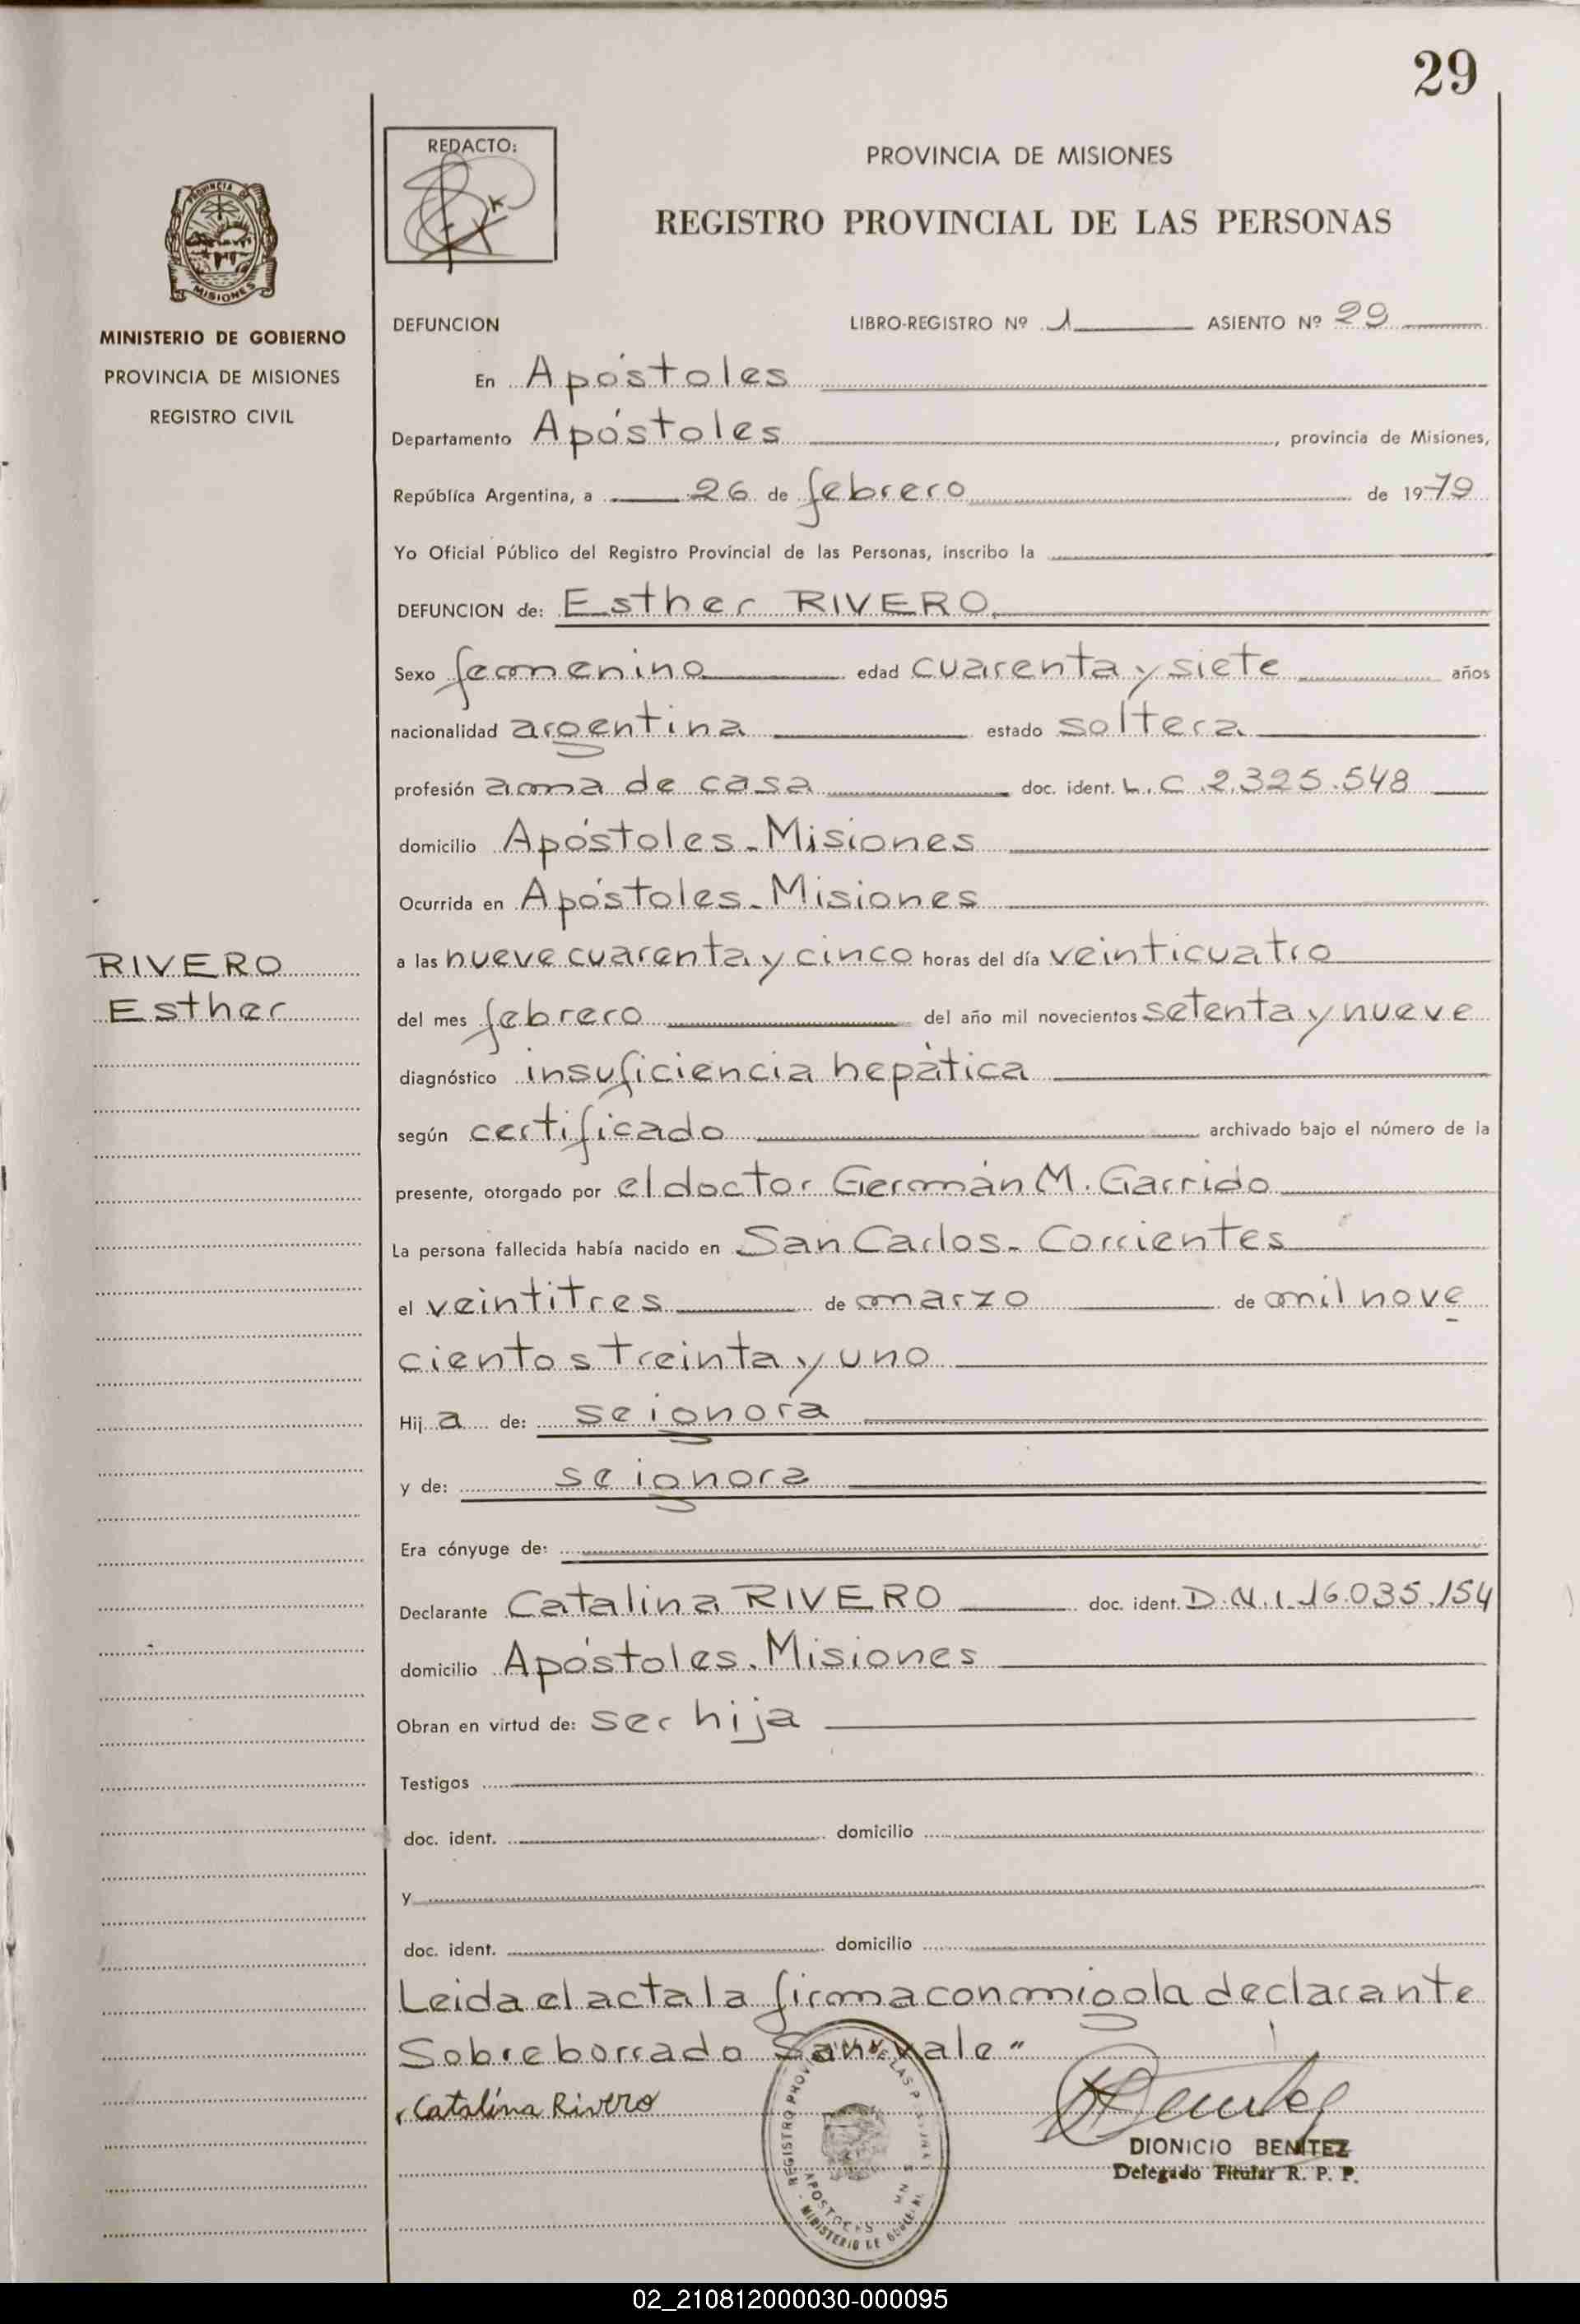 29
REDACTO:
PROVINCIA DE MISIONES
REGISTRO PROVINCIAL DE LAS PERSONAS
PROVINCIA DE
MISIONES
MINISTERIO DE GOBIERNO
PROVINCIA DE MISIONES
REGISTRO CIVIL
DEFUNCION LIBRO-REGISTRO Nº 1 ASIENTO Nº 29
En Apóstoles
Departamento Apóstoles, provincia de Misiones,
República Argentina, a 26 de febrero de 1979
Yo Oficial Público del Registro Provincial de las Personas, inscribo la
DEFUNCION de: Esther RIVERO
Sexo femenino edad cuarenta y siete años
nacionalidad argentina estado soltera
profesión ama de casa doc. ident. L.C 2.325.548
domicilio Apóstoles-Misiones
Ocurrida en Apóstoles-Misiones
RIVERO
Esther
a las nueve cuarenta y cinco horas del día veinticuatro
del mes febrero del año mil novecientos setenta y nueve
diagnóstico insuficiencia hepática
según certificado archivado bajo el número de la
presente, otorgado por el doctor Germán M. Garrido
La persona fallecida había nacido en San Carlos-Corrientes
el veintitres de marzo de mil nove
cientos treinta y uno
Hija de: se ignora
y de: se ignora
Era cónyuge de:
Declarante Catalina RIVERO doc. ident. D.N.I. 16.035.154
domicilio Apóstoles.Misiones
Obran en virtud de: ser hija
Testigos
doc. ident. domicilio
y
doc. ident. domicilio
Leida el acta la firma conmigo la declarante
Sobreborrado San vale"
Catalina Rivero
REGISTRO PROVINCIAL DE LAS PERSONAS
APOSTOLES MNS
MINISTERIO DE GOBIERNO
DIONICIO BENITEZ
Delegado Titular R. P. P.
02_210812000030-000095